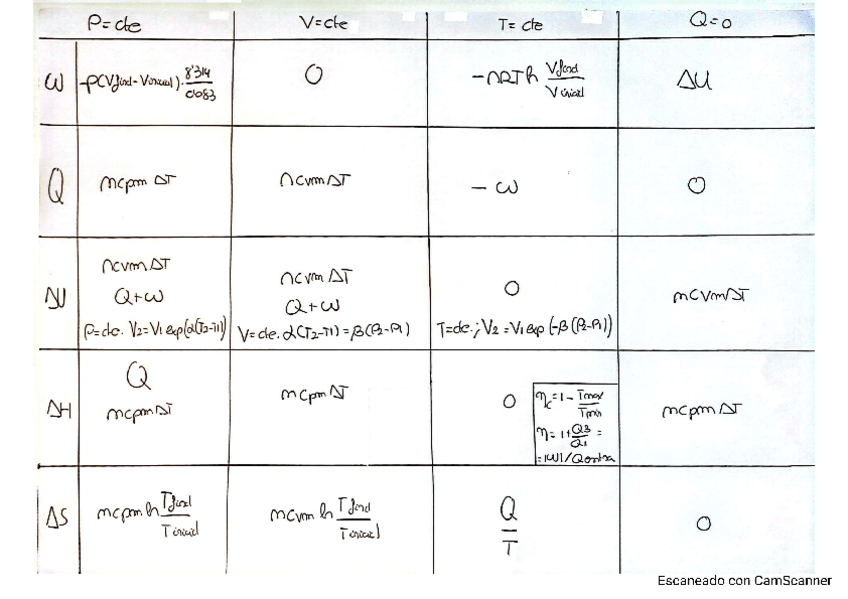 P=cte V=cte T=cte Q=0
W -P(Vfinal-Vinicial)·8'314/0'083 0 -nRTln Vfinal/Vinicial ΔU
Q ncpm ΔT ncvm ΔT -W 0
ΔU ncvm ΔT
Q+W
P=cte. V2=V1 exp(α(T2-T1)) ncvm ΔT
Q+W
V=cte. α(T2-T1)=β(P2-P1) 0
T=cte.; V2=V1 exp(-β(P2-P1)) ncvmΔT
ΔH Q
ncpmΔT ncpmΔT 0 ηc=1-Tmax/Tmin
η=1+Q3/Q1=
=|W|/Qentra ncpmΔT
ΔS ncpm ln Tfinal/Tinicial ncvm ln Tfinal/Tinicial Q/T 0
Escaneado con CamScanner